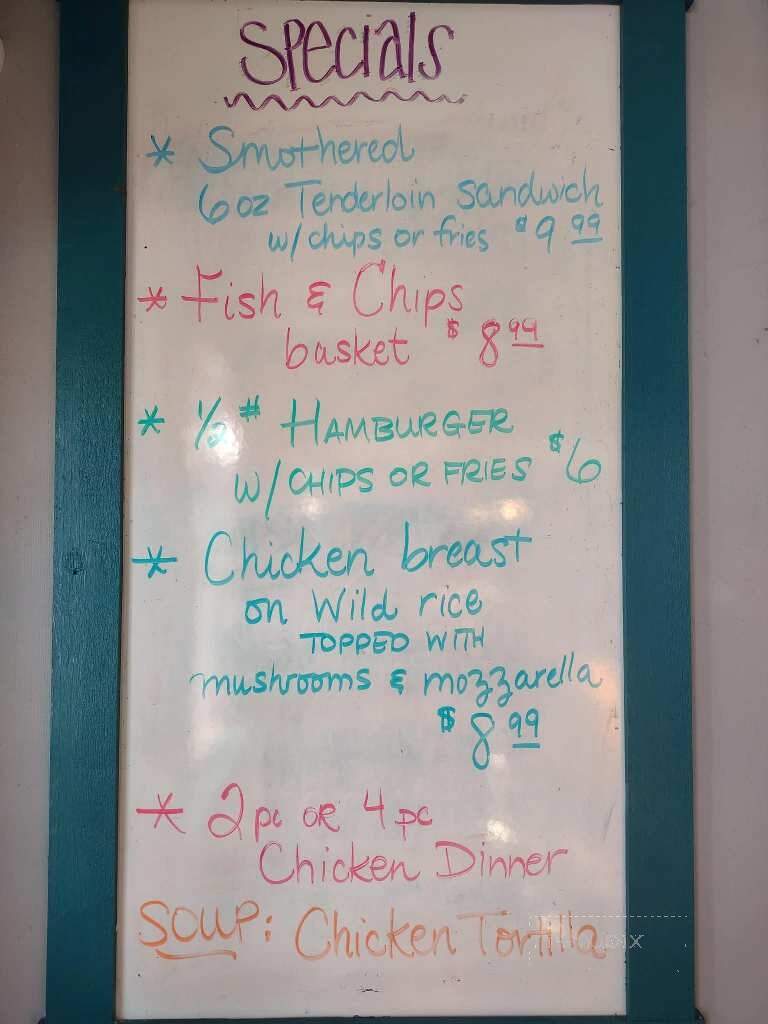 Specials
* Smothered
6oz Tenderloin Sandwich
w/chips or fries $9 99
* Fish & Chips
basket $8 99
* 1/2 # HAMBURGER
W/CHIPS OR FRIES $6
* Chicken breast
on Wild rice
TOPPED WITH
mushrooms & mozzarella
$8 99
* 2 pc OR 4 pc
Chicken Dinner
SOUP: Chicken Tortilla